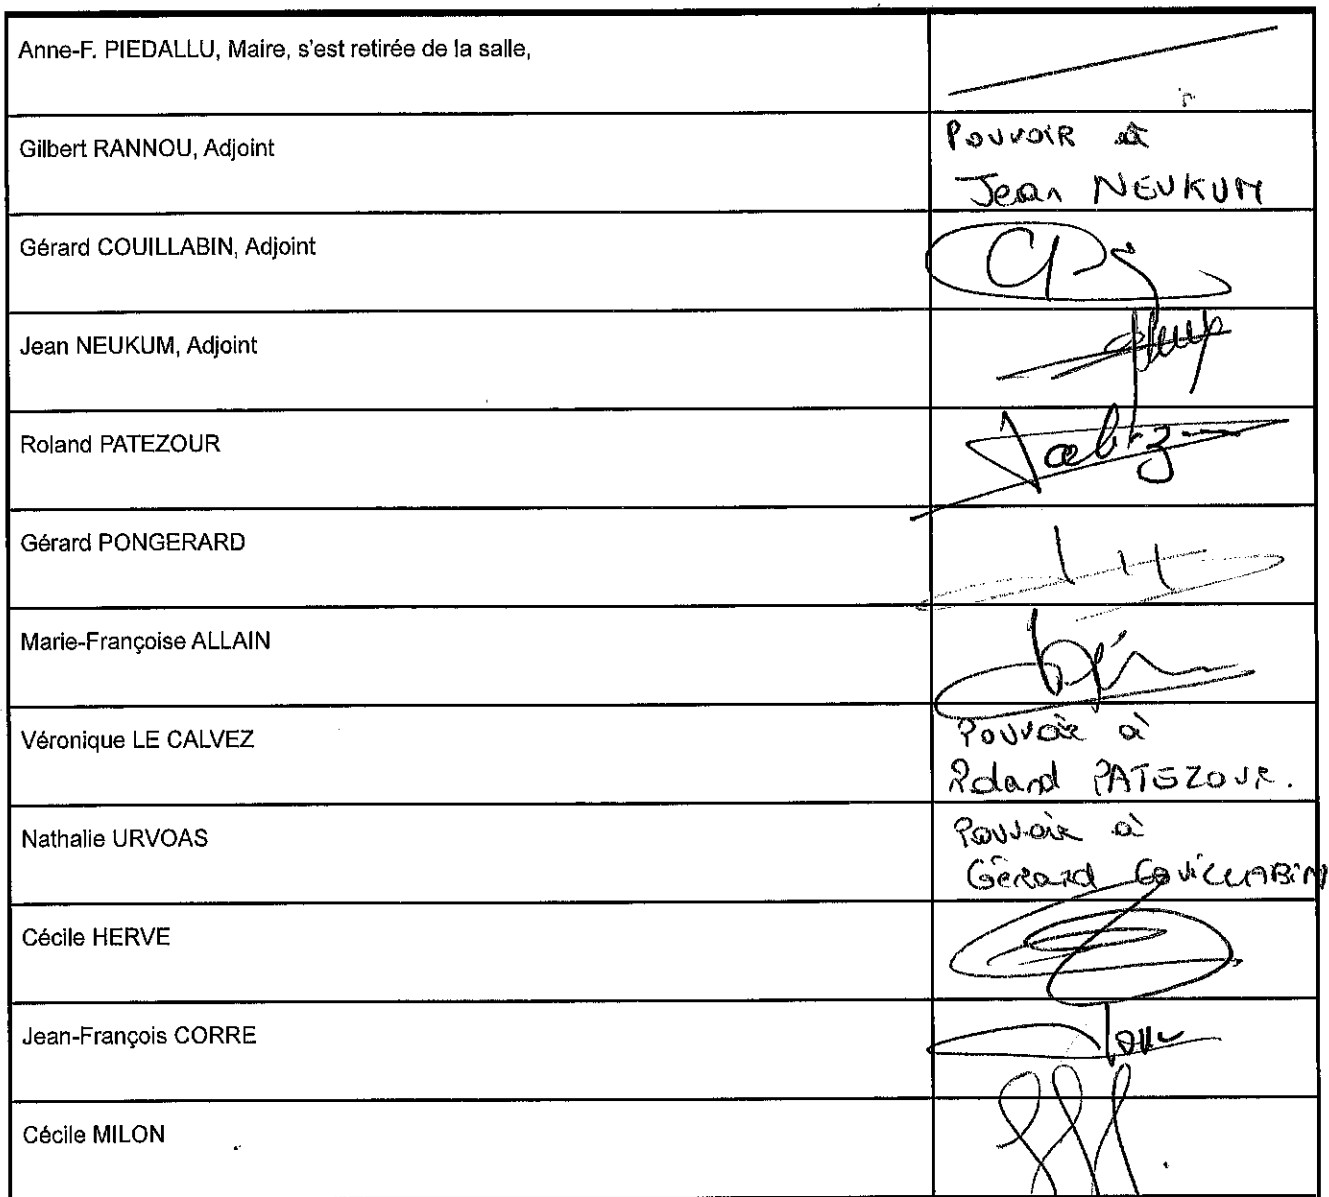 Anne-F. PIEDALLU, Maire, s'est retirée de la salle,
Gilbert RANNOU, Adjoint
POUVOIR à
Jean NEUKUM
Gérard COUILLABIN, Adjoint
Jean NEUKUM, Adjoint
Roland PATEZOUR
Gérard PONGERARD
Marie-Françoise ALLAIN
Véronique LE CALVEZ
POUVOIR à
Roland PATEZOUR.
Nathalie URVOAS
Pouvoir à
Gérard COUILLABIN
Cécile HERVE
Jean-François CORRE
Cécile MILON